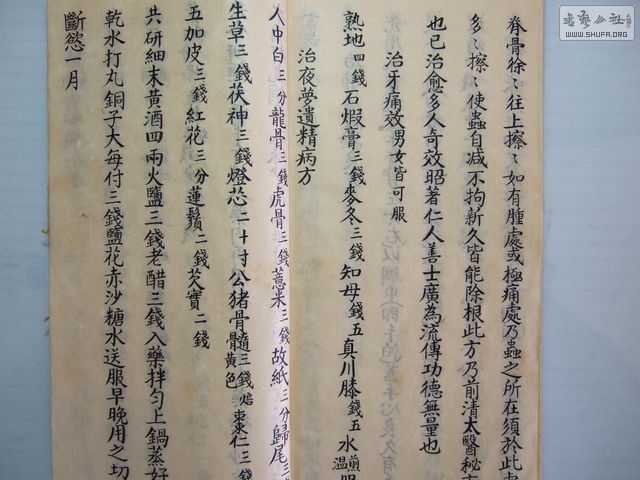 脊骨徐〻往上擦〻如有腫處或極痛處乃蟲之所在須於此處
多〻擦〻使蟲自減不拘新久皆能除根此方乃前清太醫秘
也已治愈多人奇效昭著仁人善士廣為流傳功德無量也
治牙痛效男女皆可服
熟地四錢石煆膏三錢麥冬三錢知母錢五真川膝錢五水煎溫服
治夜夢遺精病方
人中白三分龍骨三錢虎骨三錢薏米三錢故紙三分歸尾三
生草三錢茯神三錢燈芯二十寸公猪骨髓三錢焙黃色棗仁三錢
五加皮三錢紅花三分蓮鬚二錢芡實二錢
共研細末黃酒四兩火鹽三錢老醋三錢入藥拌勻上鍋蒸好
乾水打丸銅子大每付三錢鹽花赤沙糖水送服早晚用之切
斷慾一月
书艺公社
WWW.SHUFA.ORG